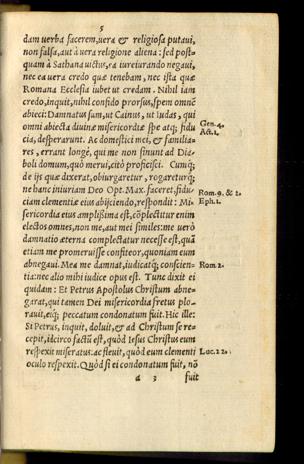 5
dam uerba facerem, uera & religiosa putaui,
non falsa, aut à uera religione aliena: sed post-
quàm à Sathana uictus, ea iureiurando negaui,
nec ea uera credo quæ tenebam, nec ista quæ
Romana Ecclesia iubet ut credam. Nihil iam
credo, inquit, nihil confido prorsus, spem omnẽ
abieci: Damnatus sum, ut Cainus, ut Iudas, qui
omni abiecta diuinæ misericordiæ spe atq; fidu-
Gen. 4.
Act. 1.
cia, desperarunt. Ac domestici mei, & familia-
res, errant longè, qui me non sinunt ad Dia-
boli domum, quò merui, citò proficisci. Cumq;
de ijs quæ dixerat, obiurgaretur, rogareturq;
ne hanc iniuriam Deo Opt. Max. faceret, fidu-
ciam clementiæ eius abijciendo, respondit: Mi-
Rom. 9. & 2.
Eph. 1.
sericordia eius amplißima est, cõplectitur enim
electos omnes, non me, aut mei similes: me uerò
damnatio æterna complectatur necesse est, quã
etiam me promeruisse confiteor, quoniam eum
abnegaui. Mea me damnat, iudicatq; conscien-
Rom 2.
tia: nec alio mihi iudice opus est. Tunc dixit ei
quidam: Et Petrus Apostolus Christum abne-
garat, qui tamen Dei misericordia fretus plo-
rauit, eiq; peccatum condonatum fuit. Hic ille:
Si Petrus, inquit, doluit, & ad Christum se re-
cepit, id circo factũ est, quòd Iesus Christus eum
respexit miseratus: ac fleuit, quòd eum clementi
Luc. 22.
oculo respexit. Quòd si ei condonatum fuit, nõ
a 3 fuit